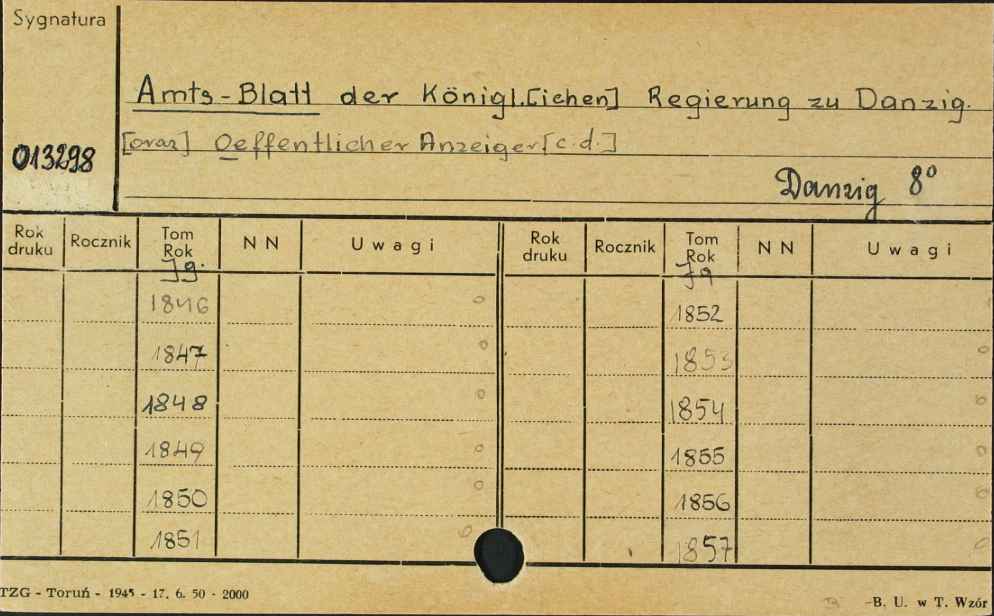 Sygnatura
Amts-Blatt der Königl.[ichen] Regierung zu Danzig.
013298
[oraz] Oeffentlicher Anzeiger [c.d.]
Danzig 8°
Rok druku Rocznik Tom Rok N N Uwagi Rok druku Rocznik Tom Rok N N Uwagi
Jg. Jg
1846 o 1852
1847 o 1853 o
1848 o 1854 o
1849 o 1855 o
1850 o 1856 o
1851 o 1857 o
TZG - Toruń - 1945 - 17. 6. 50 - 2000
-B. U. w T. Wzór